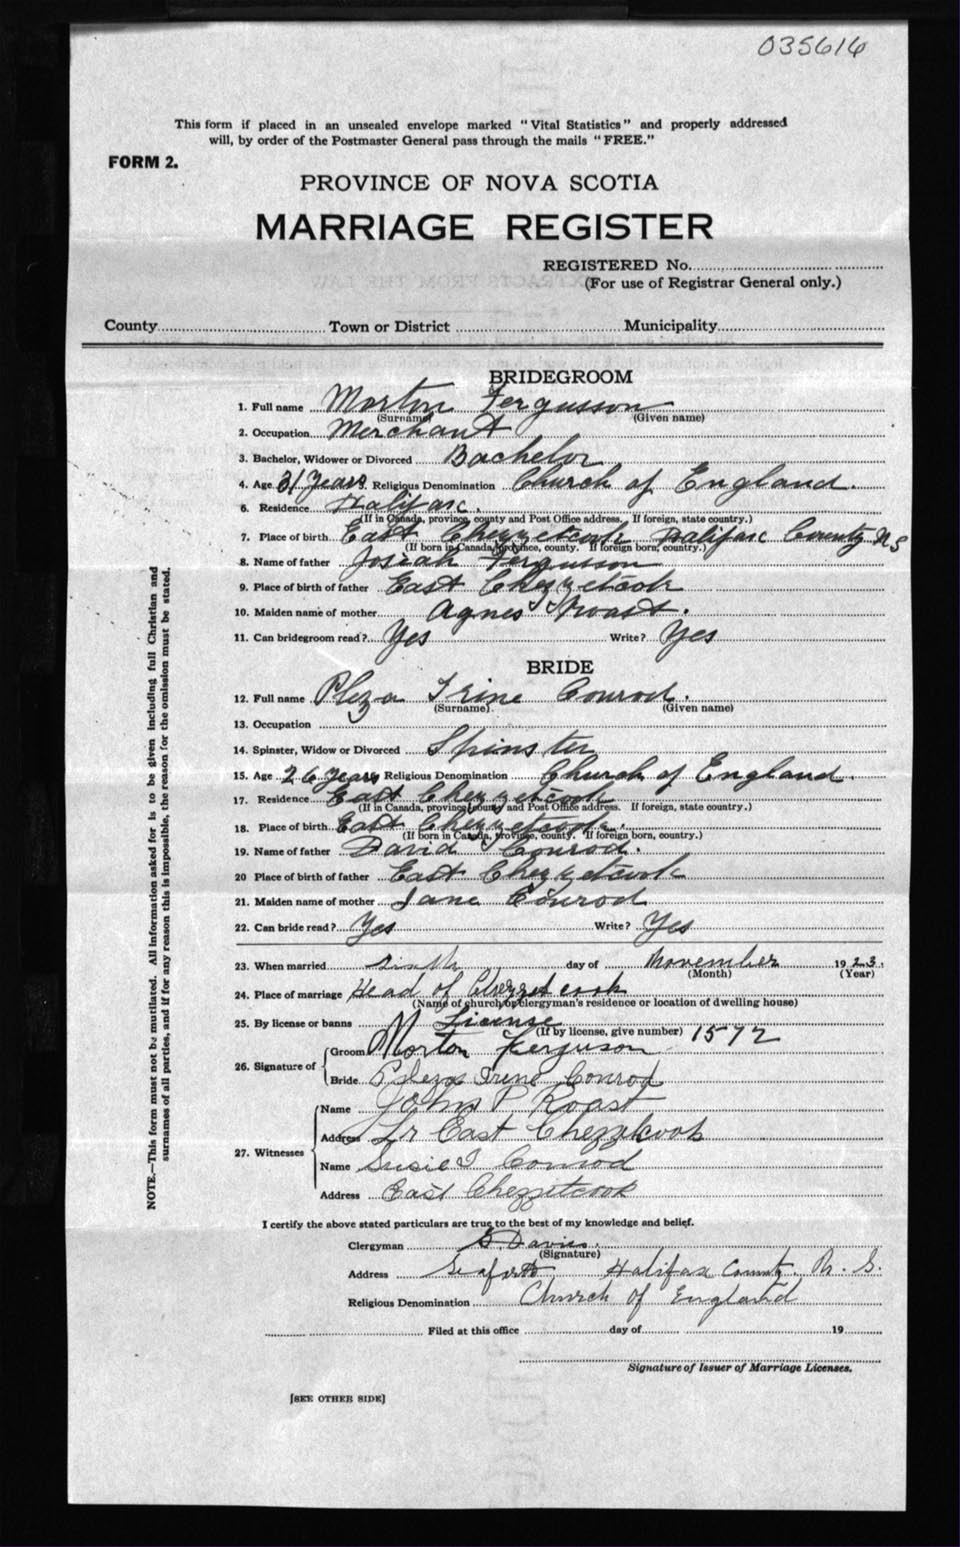 035616
This form if placed in an unsealed envelope marked "Vital Statistics" and properly addressed
will, by order of the Postmaster General pass through the mails "FREE."
FORM 2.
PROVINCE OF NOVA SCOTIA
MARRIAGE REGISTER
REGISTERED No.
(For use of Registrar General only.)
County Town or District Municipality
BRIDEGROOM
1. Full name Morton Fergusson
(Surname) (Given name)
2. Occupation Merchant
3. Bachelor, Widower or Divorced Bachelor
4. Age 31 Years. Religious Denomination Church of England.
6. Residence Halifax.
(If in Canada, province, county and Post Office address. If foreign, state country.)
7. Place of birth East Chezzetcook Halifax County N S
(If born in Canada, province, county. If foreign born, country.)
8. Name of father Josiah Fergusson
9. Place of birth of father East Chezzetcook
10. Maiden name of mother Agnes Roast.
11. Can bridegroom read? Yes Write? Yes
BRIDE
12. Full name Pleza Irine Conrod.
(Surname) (Given name)
13. Occupation
14. Spinster, Widow or Divorced Spinster
15. Age 26 Years Religious Denomination Church of England.
17. Residence East Chezzetcook
(If in Canada, province, county and Post Office address. If foreign, state country.)
18. Place of birth East Chezzetcook.
(If born in Canada, province, county. If foreign born, country.)
19. Name of father David Conrod.
20 Place of birth of father East Chezzetcook
21. Maiden name of mother Jane Conrod
22. Can bride read? Yes Write? Yes
23. When married Sixth day of November 1923.
(Month) (Year)
24. Place of marriage Head of Chezzetcook
(Name of church, or clergyman's residence or location of dwelling house)
25. By license or banns License 1572
(If by license, give number)
26. Signature of Groom Morton Ferguson
Bride Pleza Irene Conrod
27. Witnesses
Name John P Roast
Address Lr East Chezzetcook
Name Susie I Conrod
Address East Chezzetcook
I certify the above stated particulars are true to the best of my knowledge and belief.
Clergyman G. Davies.
(Signature)
Address Seaforth Halifax County. N. S.
Religious Denomination Church of England
Filed at this office day of 19
Signature of Issuer of Marriage Licenses.
[SEE OTHER SIDE]
NOTE.—This form must not be mutilated. All information asked for is to be given including full Christian and
surnames of all parties, and if for any reason this is impossible, the reason for the omission must be stated.